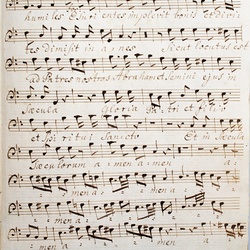 humiles Esurientes implevit bonis et divi
tes dimisit in a nes Sicut locutus est
ad Patres nostros Abraham et Semini ejus in
Sæcula Gloria Patri et filio
et Spiritui Sancto Et in Sæcula
Sæculorum a men a men a
men a
men a
men a